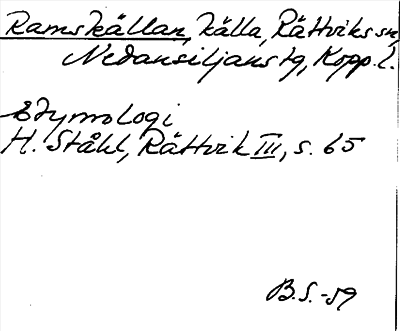 Ramskällan, källa, Rättviks sn,
Nedansiljans tg, Kopp. l.
Etymologi
H. Ståhl, Rättvik III, s. 65
B.S. -59